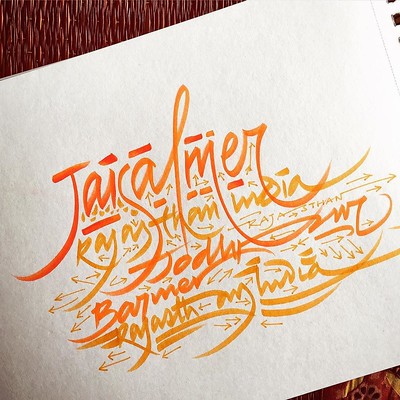 Jaisalmer
Rajasthan India
RAJASTHAN
Barmer
Rajasthan India